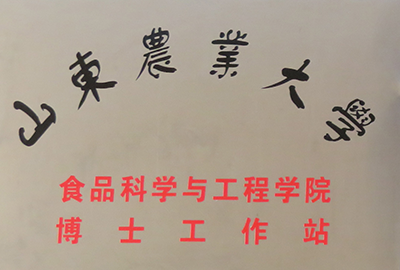 山東農業大學
食品科学与工程学院
博士工作站